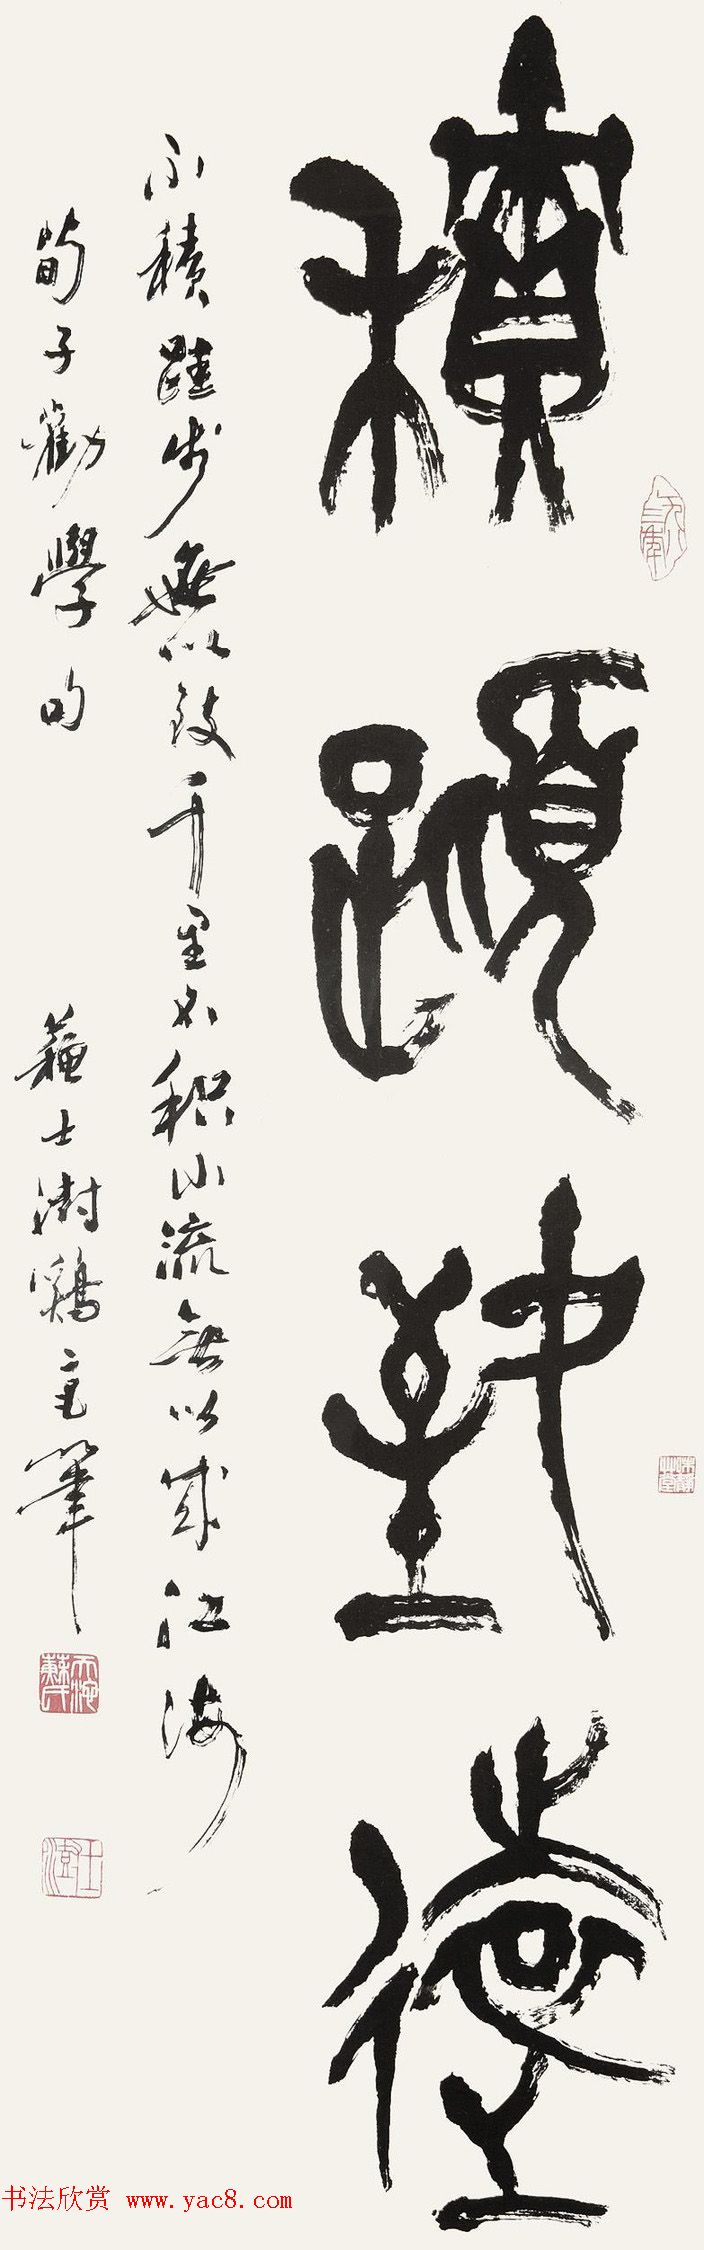 積蹞致遠
不積跬步無以致千里不积小流無以成江海
荀子勸學句 蘇士澍鶏毫筆
书法欣赏 www.yac8.com